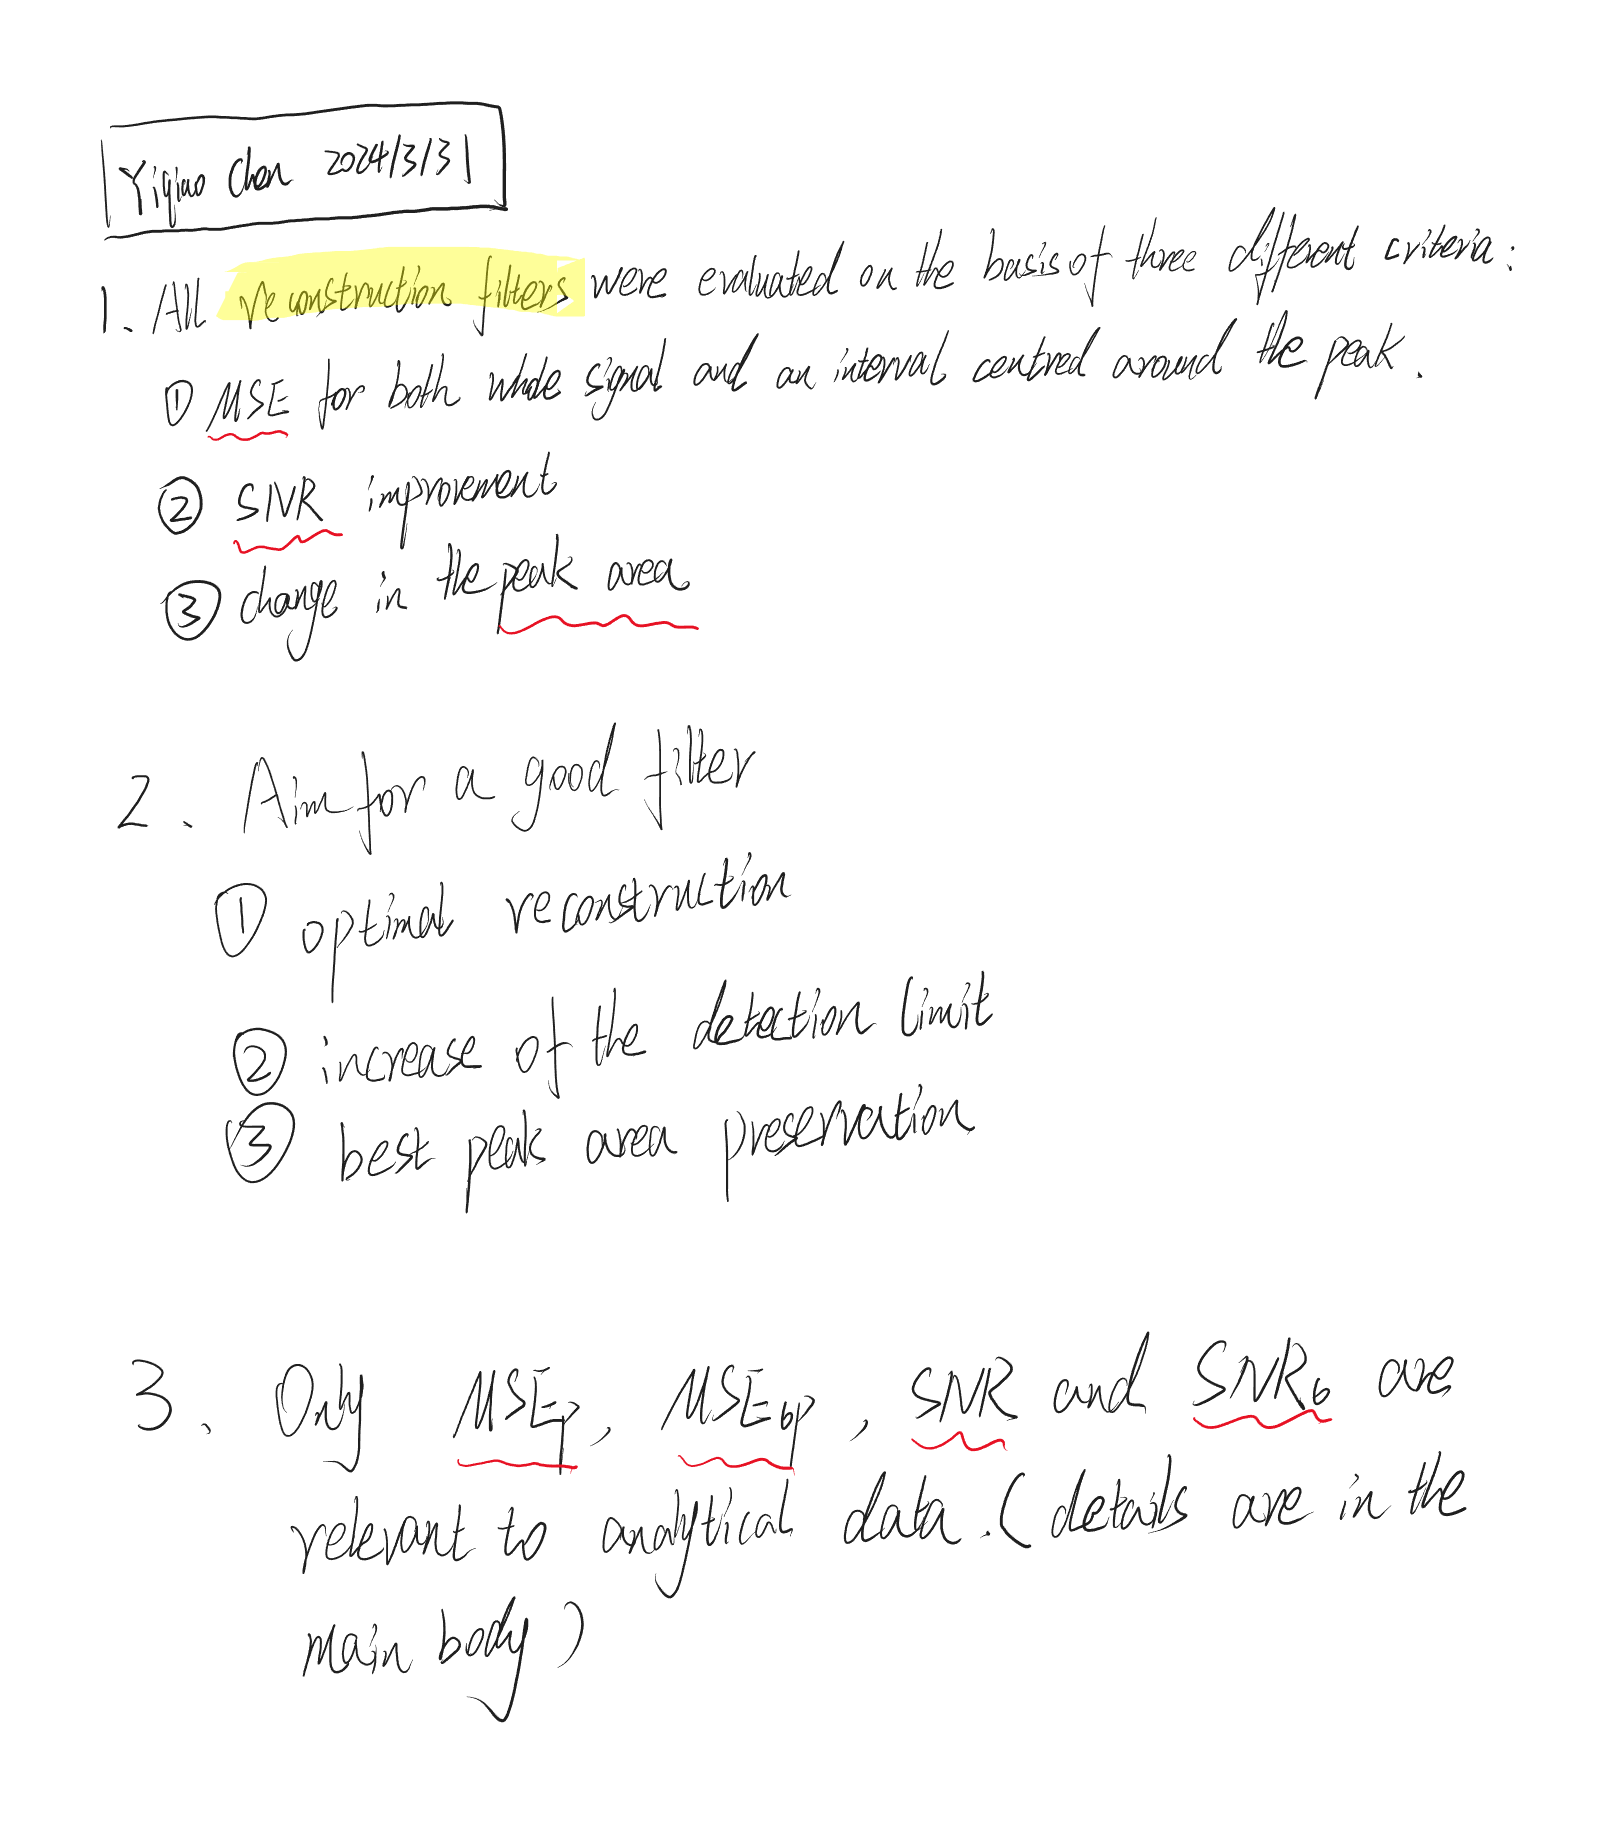 Yiqiao Chen 2024/3/31
1. All reconstruction filters were evaluated on the basis of three different criteria:
① MSE for both whole signal and an interval centred around the peak.
② SNR improvement
③ change in the peak area
2. Aim for a good filter
① optimal reconstruction
② increase of the detection limit
③ best peak area preservation
3. Only MSEp, MSE6p, SNR and SNR6 are
relevant to analytical data. (details are in the
main body)